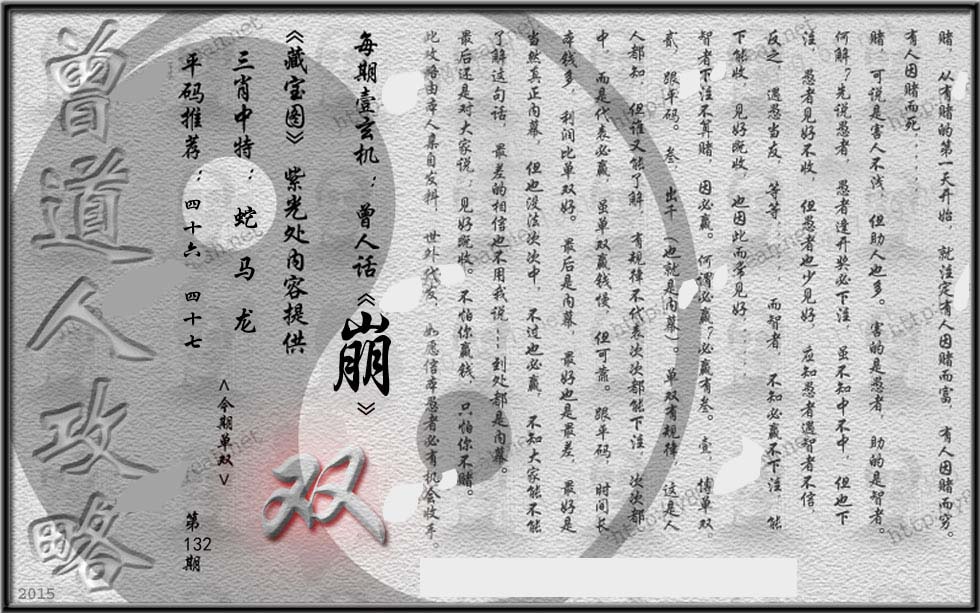 赌，从有赌的第一天开始，就注定有人因赌而富，有人因赌而穷。
有人因赌而死......
赌，可说是害人不浅，但助人也多。害的是愚者，助的是智者。
何解？先说愚者，愚者逢开奖必下注，虽不知中不中，但也下
注，愚者见好不收，但愚者也少见好，应知愚者遇智者不信，
反之，遇愚当友，等等......而智者，不知必赢不下注，能
下能收，见好既收，也因此而常见好......
智者下注不算赌，因必赢。何谓必赢？必赢有叁。壹，博单双。
贰，跟平码。叁，出千（也就是内幕）。单双有规律，这是人
人都知，但谁又能了解，有规律不代表次次都能下注，次次都
中，而是代表必赢，虽单双赢钱慢，但可靠。跟平码，时间长，
本钱多，利润比单双好。最后是内幕，最好也是最差，最好是
当然真正内幕，但也没法次次中，不过也必赢，不知大家能不能
了解这句话，最差的相信也不用我说...到处都是内幕。
最后还是对大家说：见好既收。不怕你赢钱，只怕你不赌。
此攻略由本人集自发料，世外代友，如愿信本愚者必有机会收手。
每期壹玄机：曾人话《崩》
《藏宝图》紫光处内容提供
三肖中特：蛇 马 龙
平码推荐：四十六 四十七
<今期单双>
双
第
132
期
曾道人攻略
2015